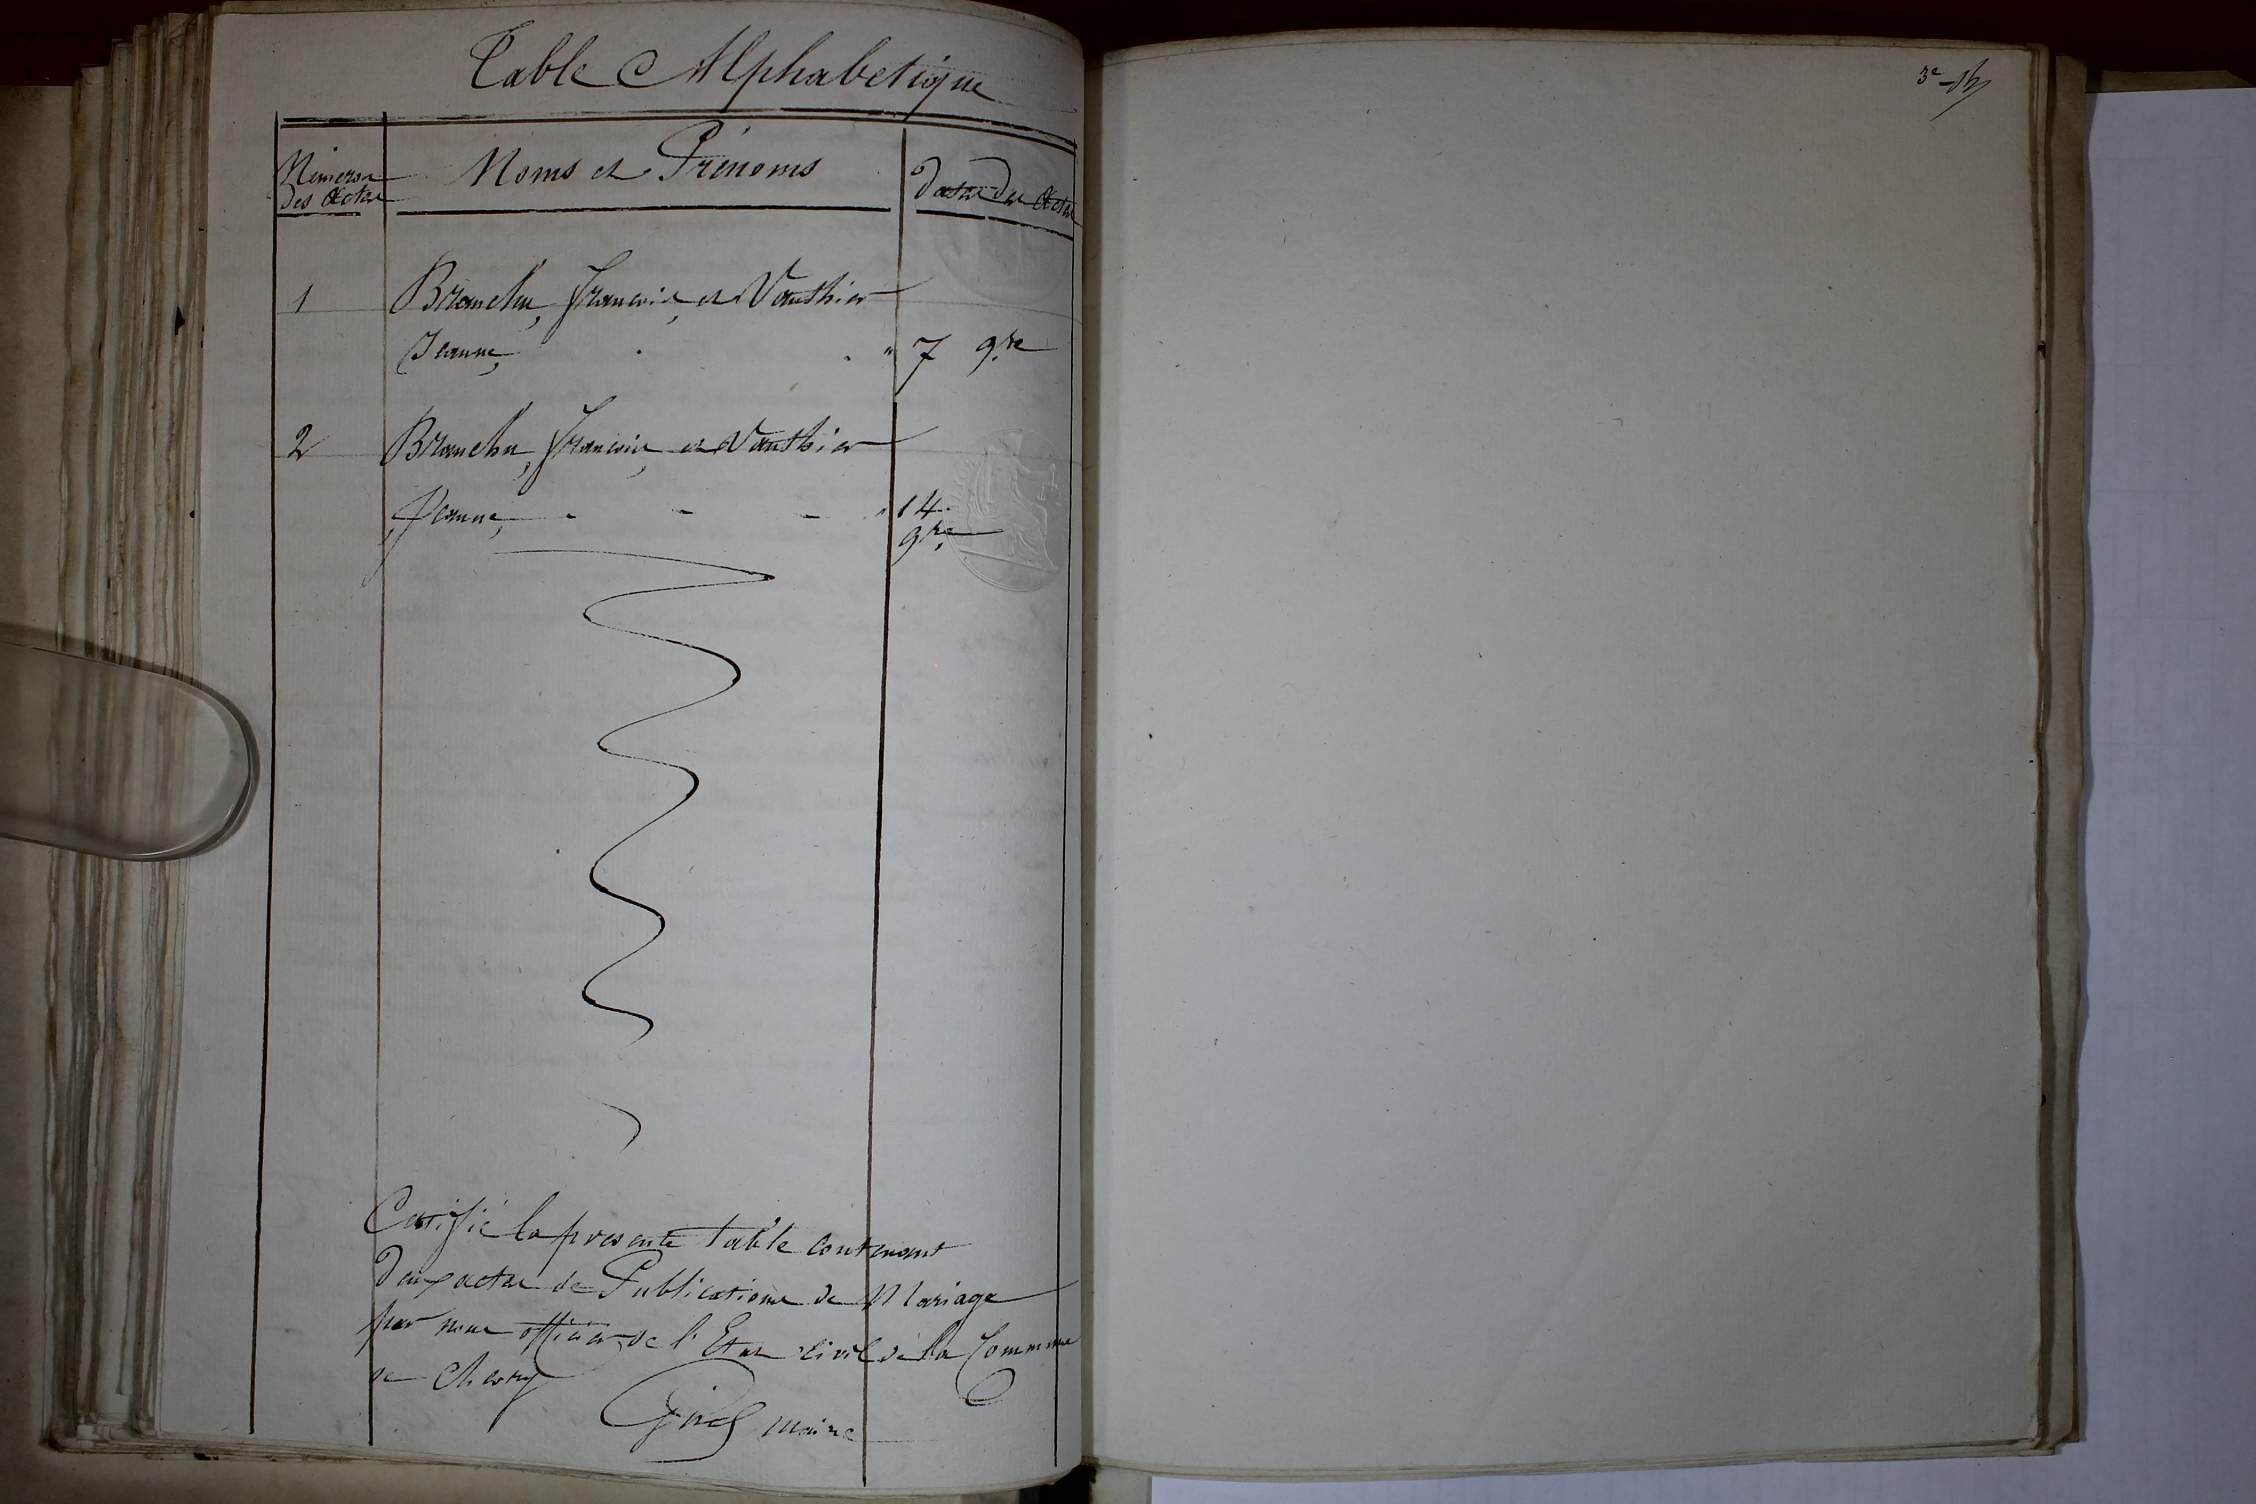 Table Alphabetique
Numeros des Actes
Noms et Prénoms
Dates des Actes
1 Branchu, François, et Vauthier
Jeanne, 7 9.bre
2 Branchu, François, et Vauthier
Jeanne, 14
9bre
Certifié la presente table contenant
deux actes de Publications de Mariage
par nous officier de l'Etat civil de la Commune
de Chevry
maire
3e